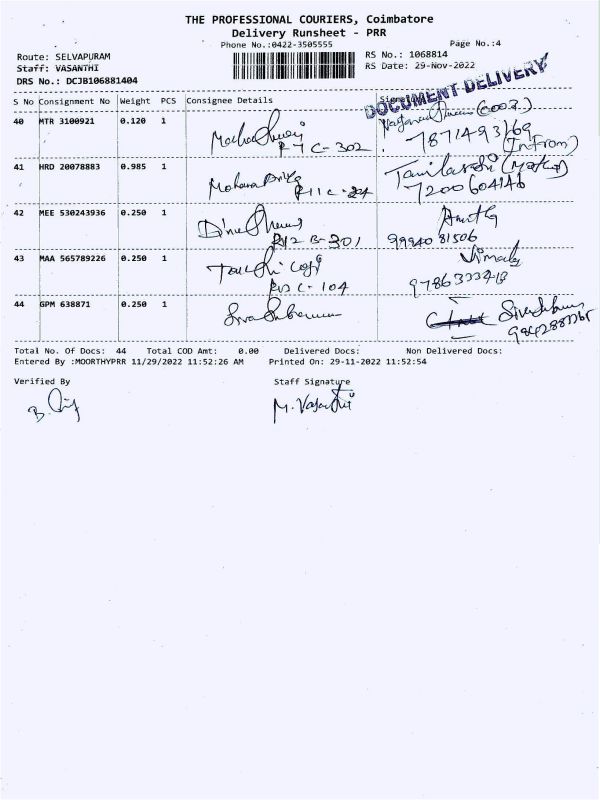 THE PROFESSIONAL COURIERS, Coimbatore
Delivery Runsheet - PRR
Phone No.:0422-3505555
Page No.:4
Route: SELVAPURAM
RS No.: 1068814
Staff: VASANTHI
RS Date: 29-Nov-2022
DRS No.: DCJB106881404
DOCUMENT-DELIVERY
S No Consignment No Weight PCS Consignee Details
40 MTR 3100921 0.120 1
R-7 C-302 7871493169
41 HRD 20078883 0.985 1 Mohana Priya
R11 C-24 7200604146
42 MEE 530243936 0.250 1
R12 B-301 9994081506
43 MAA 565789226 0.250 1 Vimala
R13 C-104 9786333413
44 GPM 638871 0.250 1
Total No. Of Docs: 44 Total COD Amt: 0.00 Delivered Docs: Non Delivered Docs:
Entered By :MOORTHYPRR 11/29/2022 11:52:26 AM Printed On: 29-11-2022 11:52:54
Verified By Staff Signature
M. Vasanthi